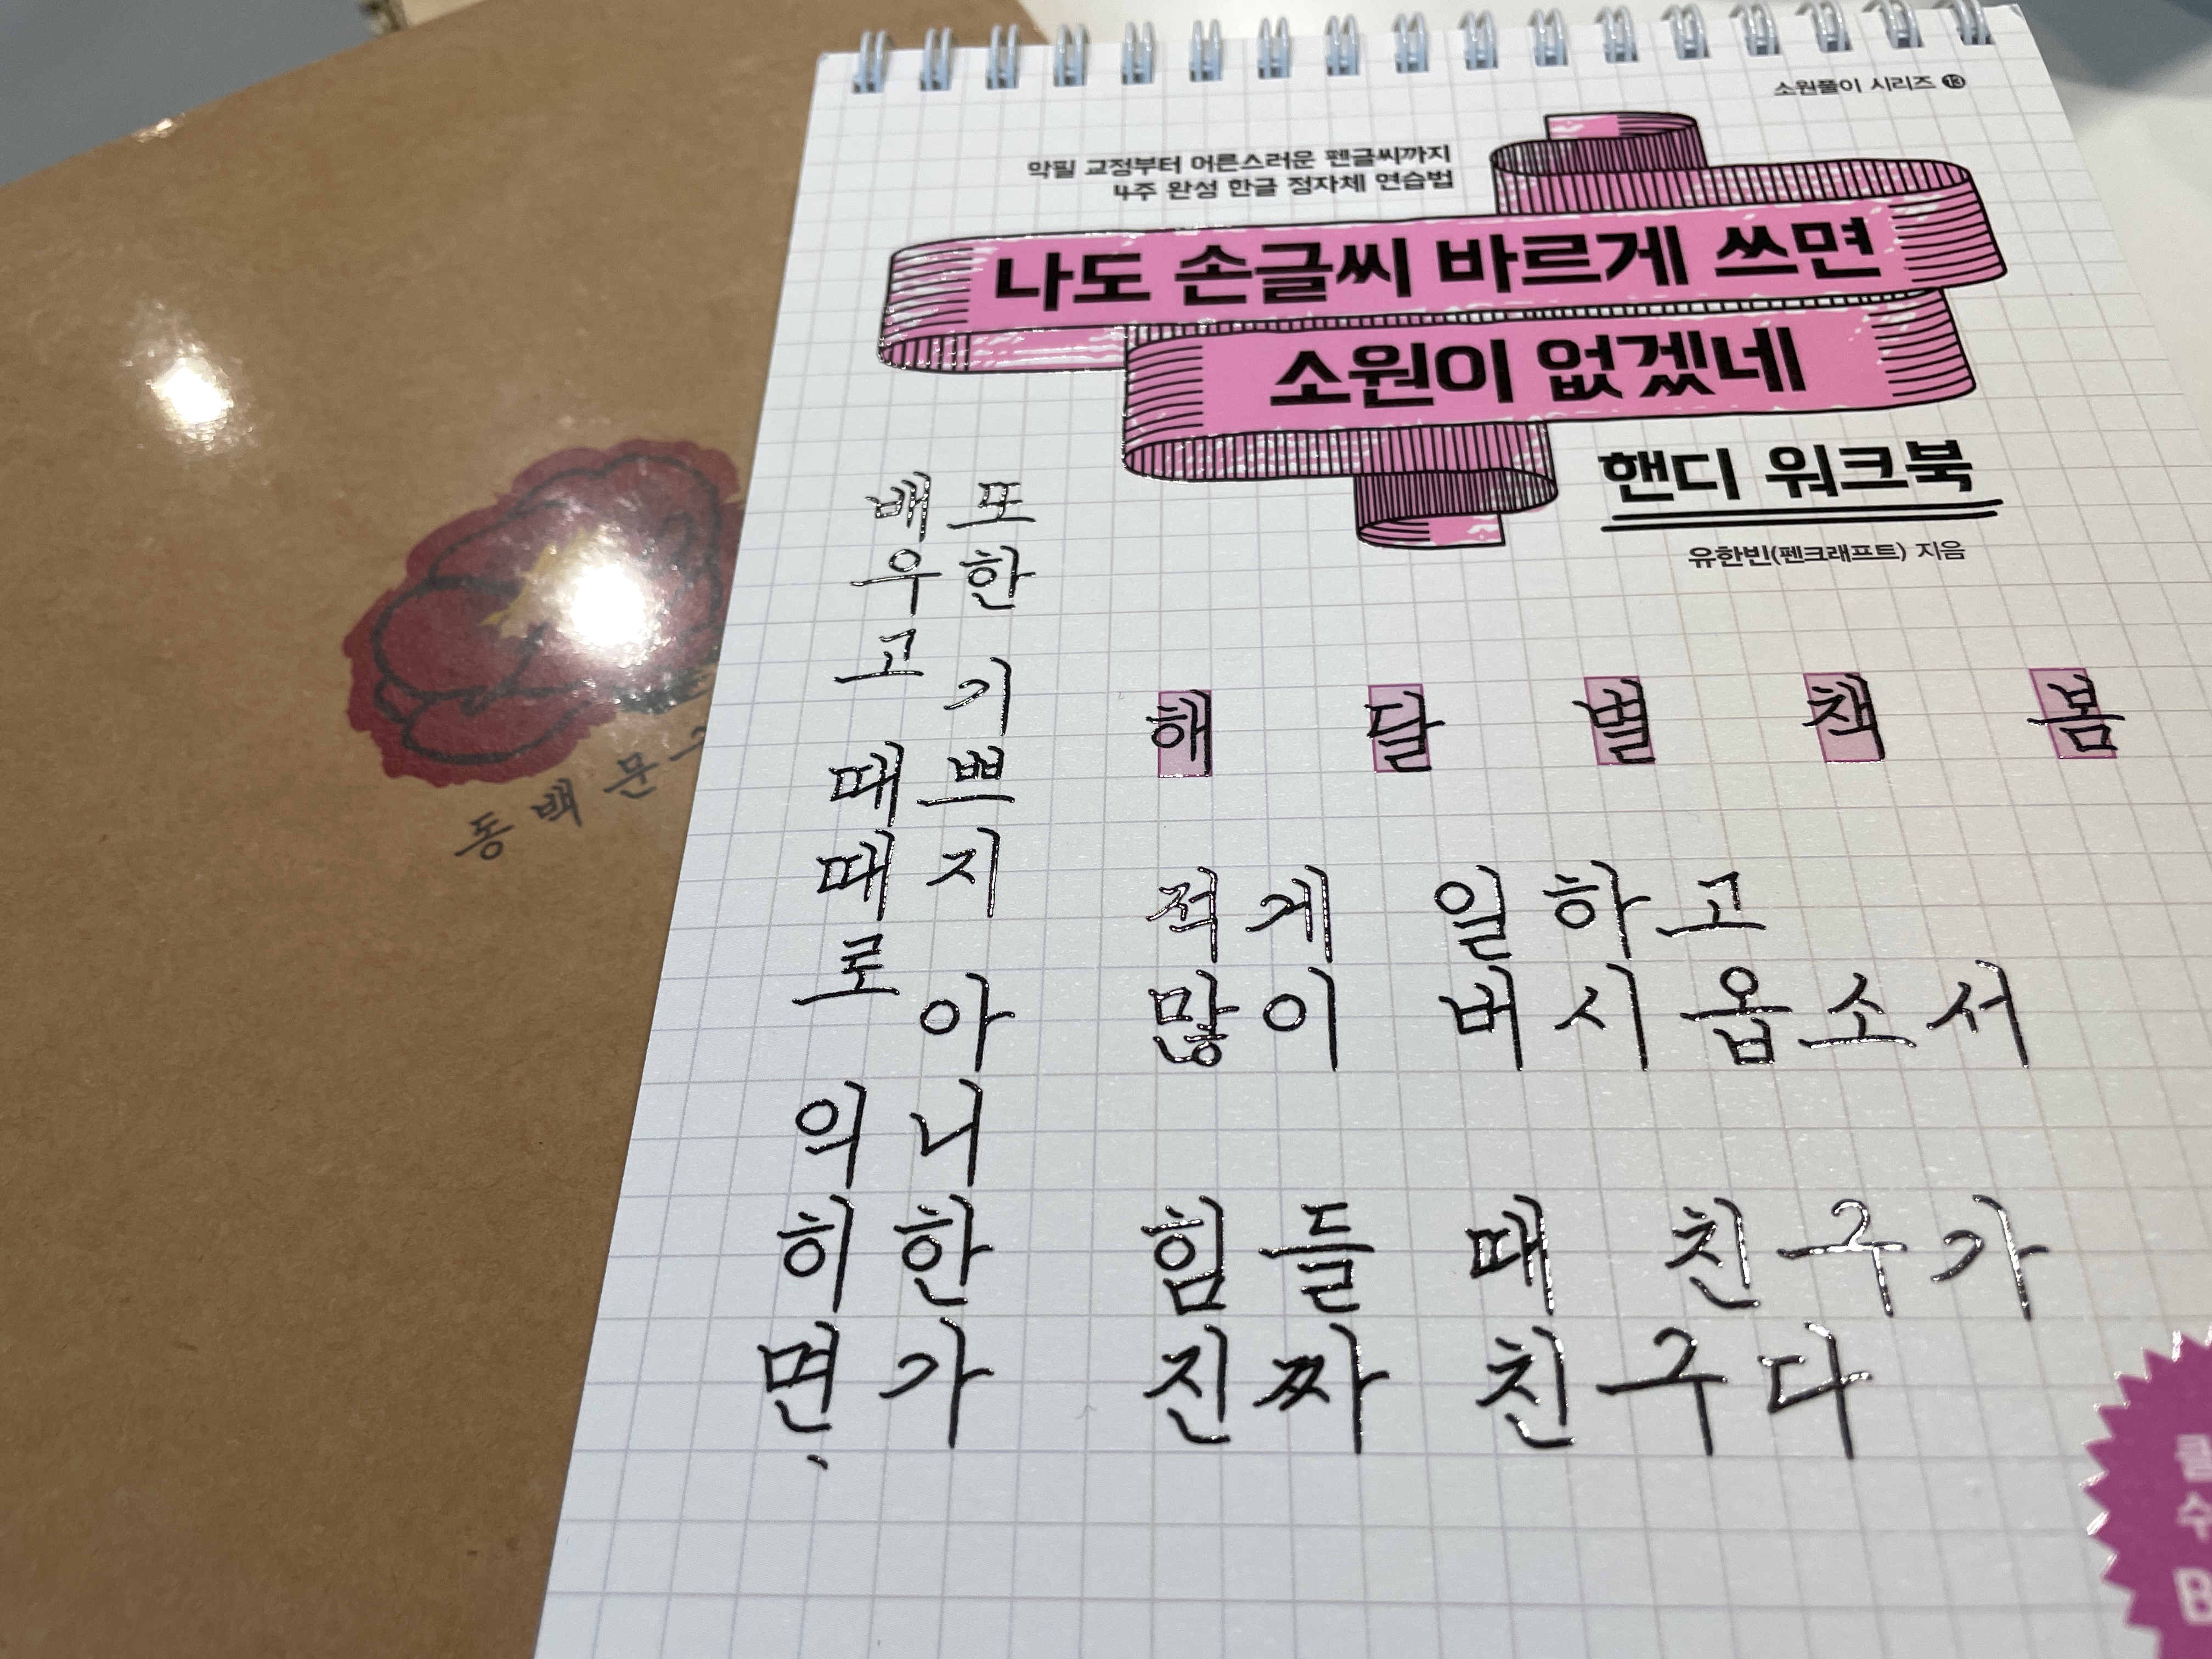 소원풀이 시리즈 13
악필 교정부터 어른스러운 펜글씨까지
4주 완성 한글 정자체 연습법
나도 손글씨 바르게 쓰면
소원이 없겠네
핸디 워크북
유한빈(펜크래프트) 지음
배우고 때때로 익히면,
또한 기쁘지 아니한가
해 달 별 책 봄
적게 일하고
많이 버시옵소서
힘들 때 친구가
진짜 친구다
동백문